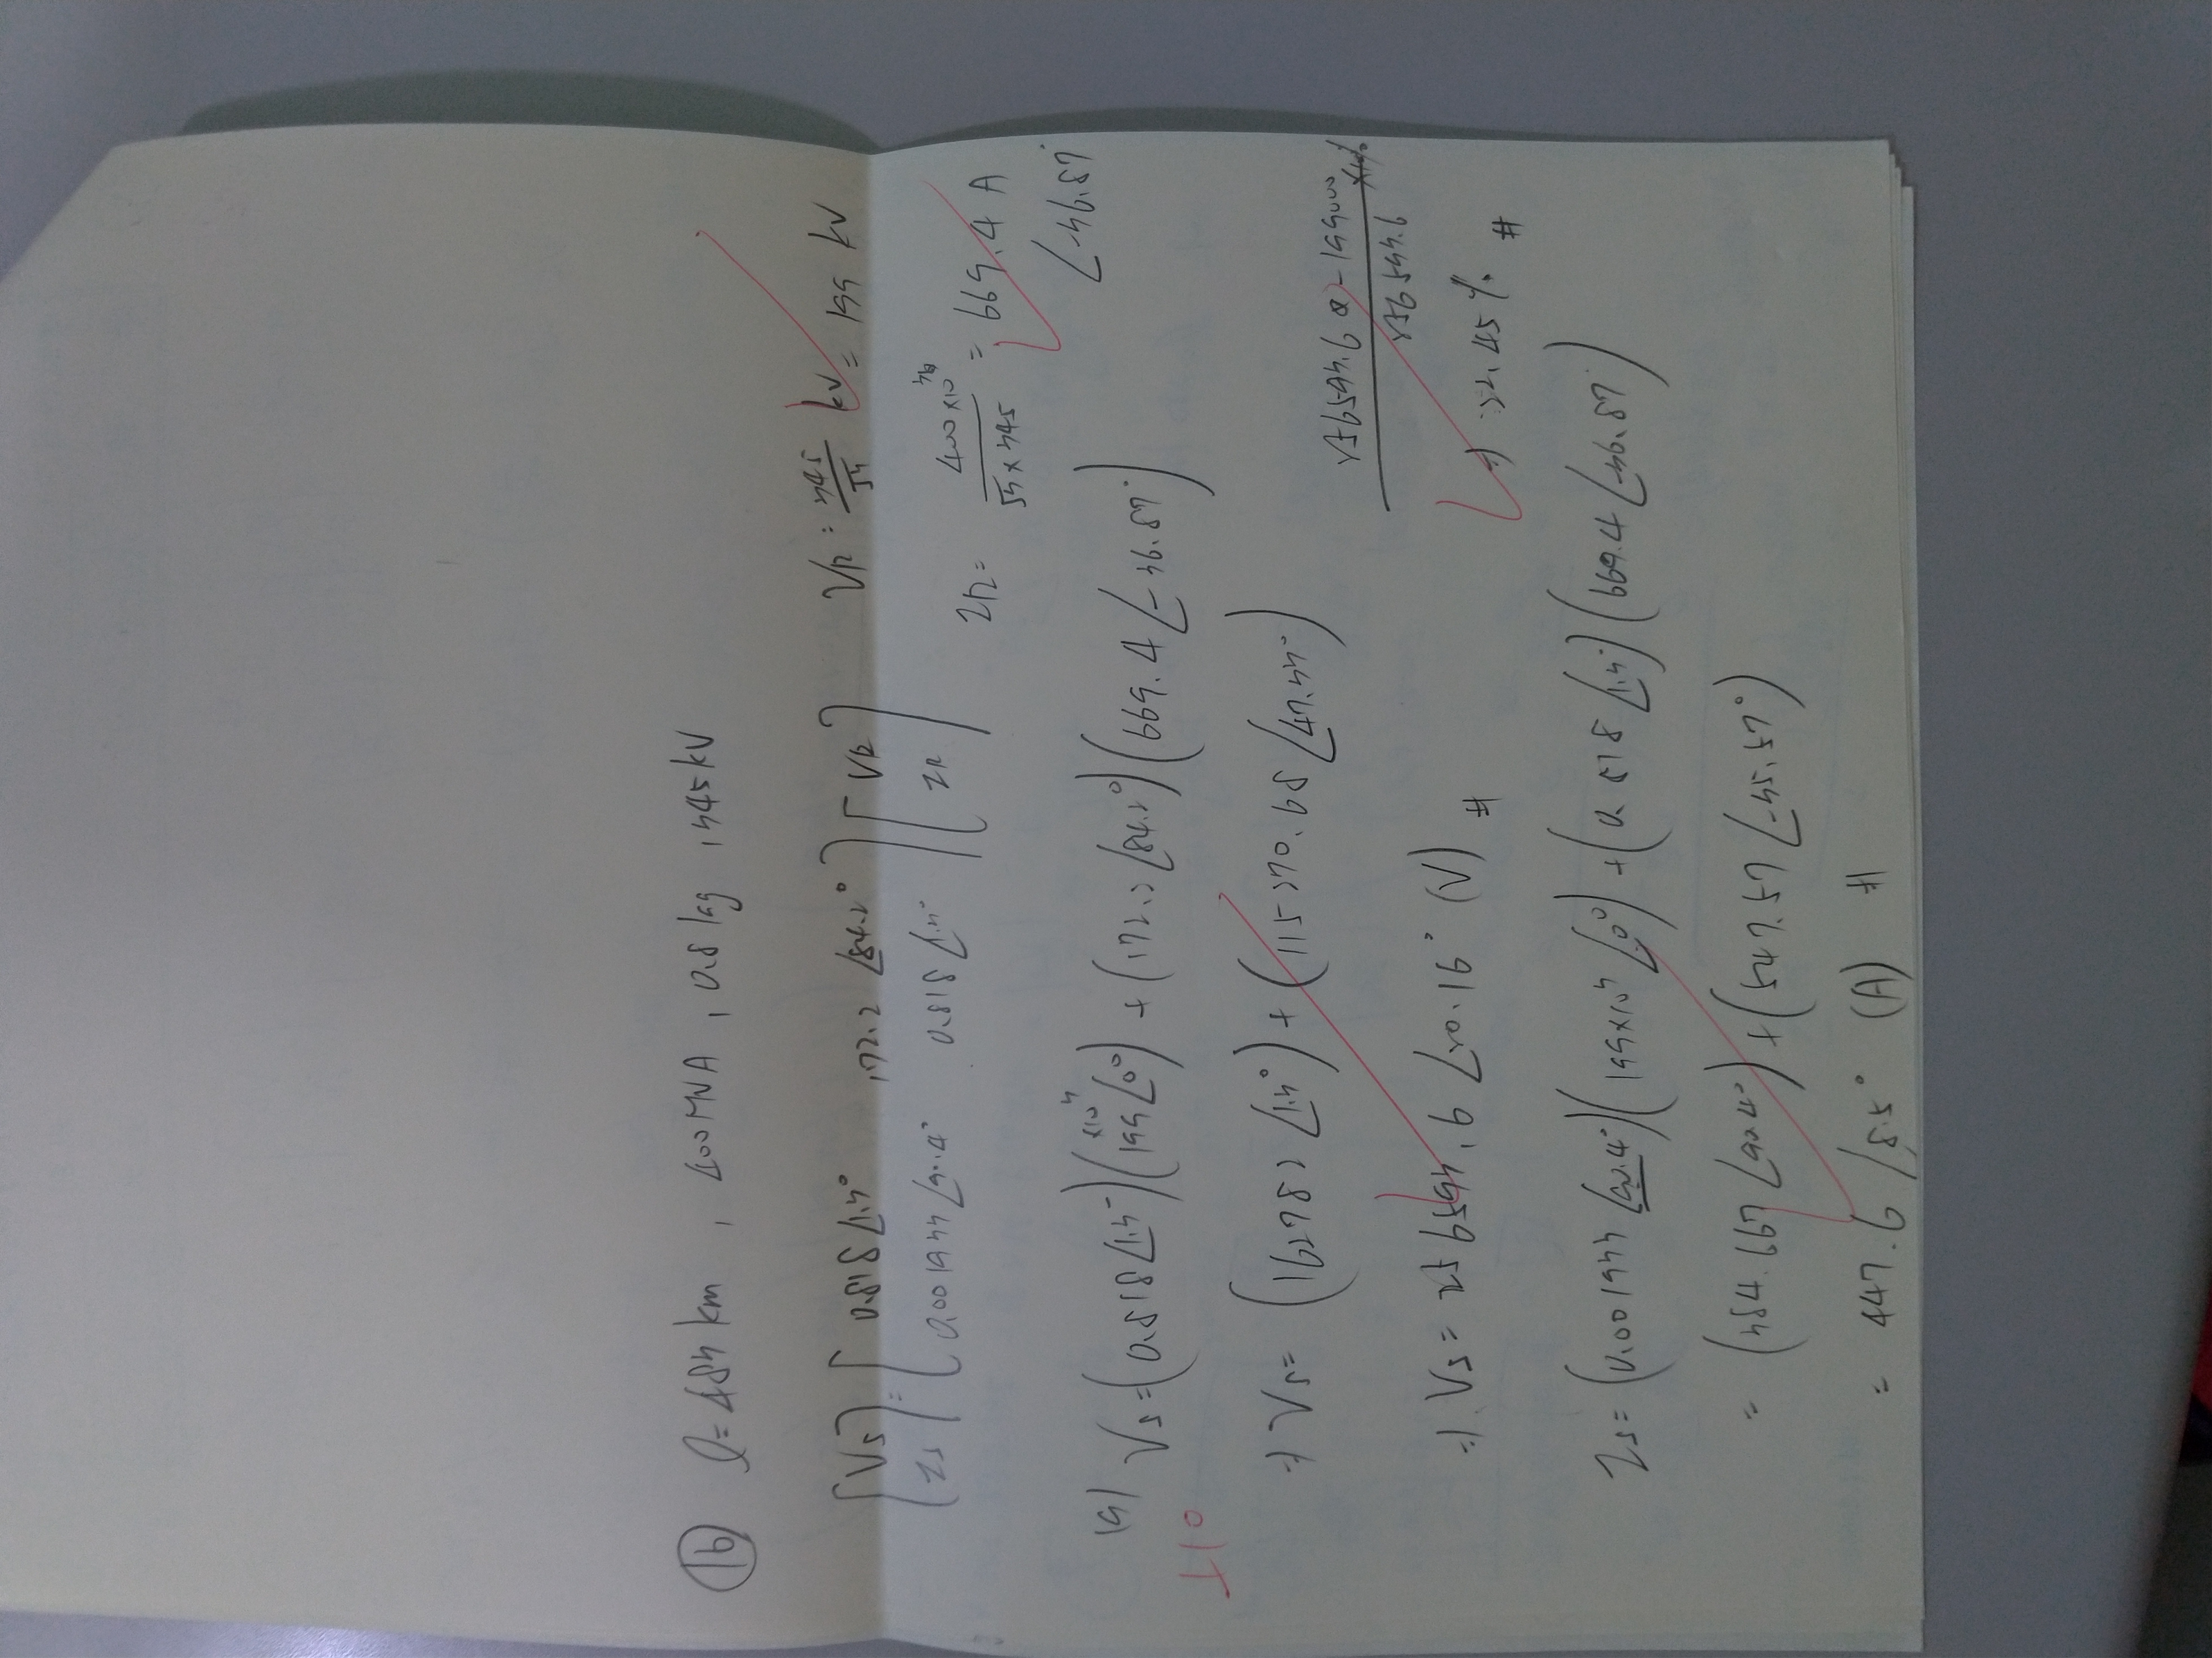 ⑯ l = 483 km , 400 MVA , 0.8 lag , 345 kV
[Vs Is] = [0.818 ∠1.3° 172.2 ∠84.2° 0.001933 ∠90.4° 0.818 ∠1.3°] [VR IR]
VR = 345/√3 kV = 199 kV
IR = 400×10³/√3×345 = 669.4 A
∠-36.87°
(a) Vs = (0.818 ∠1.3°)(199×10³ ∠0°) + (172.2 ∠84.2°)(669.4 ∠-36.87°)
+10
⇒ Vs = (162782 ∠1.3°) + (115270.68 ∠47.33°)
256593.6 - 199000/256593.6 ×100%
⇒ Vs = 256593.6 ∠20.16° (V) #
⇒ 22.45% #
Is = (0.001933 ∠90.4°)(199×10³ ∠0°) + (0.818 ∠1.3°)(669.4 ∠-36.87)
= (384.667 ∠90.4°) + (547.57 ∠-35.57°)
= 447.6 ∠8.5° (A) #